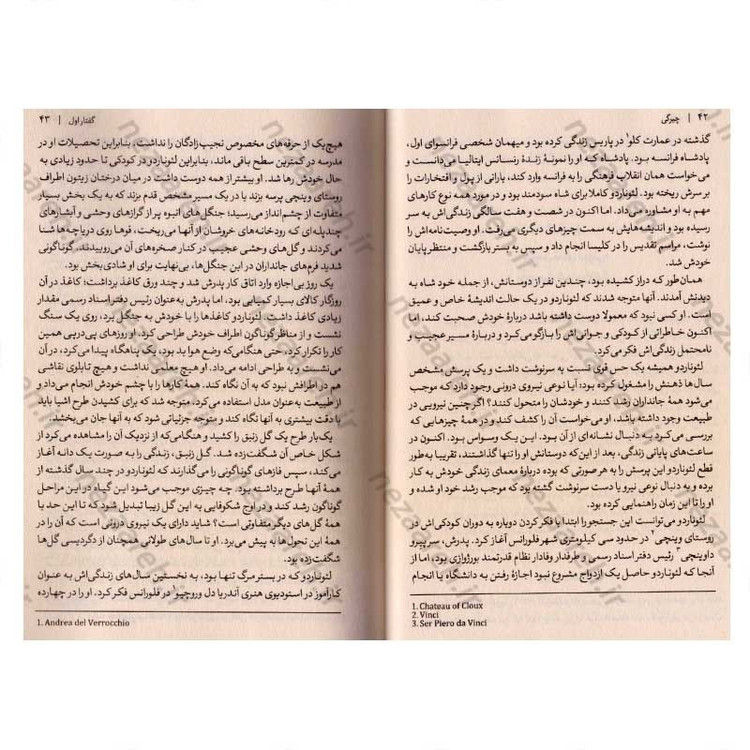 ۴۲ | چیرگی
گذشته در عمارت کلو¹ در پاریس زندگی کرده بود و میهمان شخصی فرانسوای اول،
پادشاه فرانسه بود. پادشاه که او را نمونهٔ زندهٔ رنسانس ایتالیا می‌دانست و
می‌خواست همان انقلاب فرهنگی را به فرانسه وارد کند، بارانی از پول و افتخارات را
بر سرش ریخته بود. لئوناردو کاملا برای شاه سودمند بود و در مورد همه نوع کارهای
مهم به او مشاوره می‌داد. اما اکنون در شصت و هفت سالگی زندگی‌اش به سر
رسیده بود و اندیشه‌هایش به سمت چیزهای دیگری می‌رفت. او وصیت‌نامه‌اش را
نوشت، مراسم تقدیس را در کلیسا انجام داد و سپس به بستر بازگشت و منتظر پایان
خودش شد.
همان‌طور که دراز کشیده بود، چندین نفر از دوستانش، از جمله خود شاه به
دیدنش آمدند. آنها متوجه شدند که لئوناردو در یک حالت اندیشهٔ خاص و عمیق
است. او کسی نبود که معمولا دوست داشته باشد دربارهٔ خودش صحبت کند، اما
اکنون خاطراتی از کودکی و جوانی‌اش را بازگو می‌کرد و دربارهٔ مسیر عجیب و
نامحتمل زندگی‌اش فکر می‌کرد.
لئوناردو همیشه یک حس قوی نسبت به سرنوشت داشت و یک پرسش مشخص
سال‌ها ذهنش را مشغول کرده بود: آیا نوعی نیروی درونی وجود دارد که موجب
می‌شود همهٔ جانداران رشد کنند و خودشان را متحول کنند؟ اگر چنین نیرویی در
طبیعت وجود داشته باشد، او می‌خواست آن را کشف کند و در همهٔ چیزهایی که
بررسی می‌کرد به دنبال نشانه‌ای از آن بود. این یک وسواس بود. اکنون در
ساعت‌های پایانی زندگی، بعد از این‌که دوستانش او را تنها گذاشتند، تقریبا به‌طور
قطع لئوناردو این پرسش را به هر صورتی که بوده دربارهٔ معمای زندگی خودش به کار
برده و به دنبال نوعی نیرو یا دست سرنوشت گشته بود که موجب رشد خود او شده و
او را تا این زمان راهنمایی کرده بود.
لئوناردو می‌توانست این جستجو را ابتدا با فکر کردن دوباره به دوران کودکی‌اش در
روستای وینچی² در حدود سی کیلومتری شهر فلورانس آغاز کرد. پدرش، سر پیرو
داوینچی³ رئیس دفتر اسناد رسمی و طرفدار وفادار نظام قدرتمند بورژوازی بود، اما از
آنجا که لئوناردو حاصل یک ازدواج مشروع نبود اجازهٔ رفتن به دانشگاه یا انجام
1. Chateau of Cloux
2. Vinci
3. Ser Piero da Vinci
گفتار اول | ۴۳
هیچ‌یک از حرفه‌های مخصوص نجیب‌زادگان را نداشت، بنابراین تحصیلات او در
مدرسه در کمترین سطح باقی ماند، بنابراین لئوناردو در کودکی تا حدود زیادی به
حال خودش رها شد. او بیشتر از همه دوست داشت در میان درختان زیتون اطراف
روستای وینچی پرسه بزند یا در یک مسیر مشخص قدم بزند که به یک بخش بسیار
متفاوت از چشم انداز می‌رسید؛ جنگل‌های انبوه پر از گرازهای وحشی و آبشارهای
چندپله‌ای که رودخانه‌های خروشان از آنها می‌ریخت، قوها روی دریاچه‌ها شنا
می‌کردند و گل‌های وحشی عجیب در کنار صخره‌های آن می‌روییدند. گوناگونی
شدید فرم‌های جانداران در این جنگل‌ها، بی‌نهایت برای او شادی‌بخش بود.
یک روز بی‌اجازه وارد اتاق کار پدرش شد و چند ورق کاغذ برداشت؛ کاغذ در آن
روزگار کالای بسیار کمیابی بود، اما پدرش به‌عنوان رئیس دفتر اسناد رسمی مقدار
زیادی کاغذ داشت. لئوناردو کاغذها را با خودش به جنگل برد، روی یک سنگ
نشست و از مناظر گوناگون اطراف خودش طراحی کرد. او روزهای پی‌درپی همین
کار را تکرار کرد، حتی هنگامی‌که وضع هوا بد بود، یک پناهگاه پیدا می‌کرد، در آن
می‌نشست و به طراحی ادامه می‌داد. او هیچ معلمی نداشت و هیچ تابلوی نقاشی
هم در اطرافش نبود که به آن نگاه کند. همهٔ کارها را با چشم خودش انجام می‌داد و
از طبیعت به‌عنوان مدل استفاده می‌کرد. متوجه شد که برای کشیدن طرح اشیا باید
با دقت بیشتری به آنها نگاه کند و متوجه جزئیاتی شود که به آنها جان می‌بخشید.
یک‌بار طرح یک گل زنبق را کشید و هنگامی‌که از نزدیک آن را مشاهده می‌کرد از
شکل خاص آن شگفت‌زده شد. گل زنبق، زندگی را به صورت یک دانه آغاز
می‌کند، سپس فازهای گوناگونی را می‌گذارند که لئوناردو در چند سال گذشته از
همهٔ آنها طرح برداشته بود. چه چیزی موجب می‌شود این گیاه در این مراحل
گوناگون رشد کند و در اوج شکوفایی به این گل زیبا تبدیل شود که تا این حد با
همهٔ گل‌های دیگر متفاوتی است؟ شاید دارای یک نیروی درونی است که آن را در
همهٔ این تحول‌ها به پیش می‌برد. او تا سال‌های طولانی همچنان از دگردیسی گل‌ها
شگفت‌زده بود.
لئوناردو که در بستر مرگ تنها بود، به نخستین سال‌های زندگی‌اش به عنوان
کارآموز در استودیوی هنری آندریا دل وروچیو¹ در فلورانس فکر کرد. او را در چهارده
1. Andrea del Verrocchio
nezaah.ir